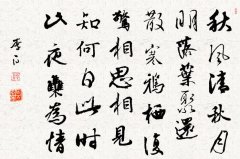 秋風清秋月
明落葉聚還
散寒鴉栖復
驚相思相見
知何日此時
此夜難為情
李白